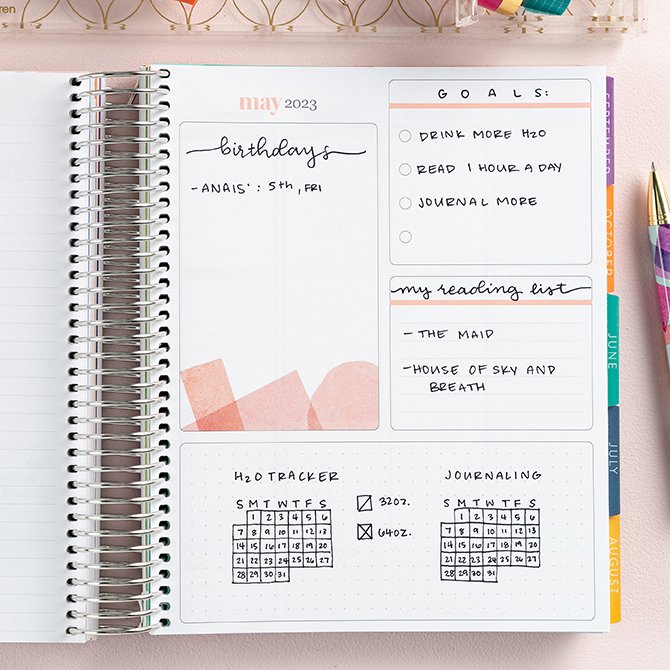 ren
may 2023
birthdays
- ANAIS' : 5th, FRI
GOALS:
DRINK MORE H2O
READ 1 HOUR A DAY
JOURNAL MORE
my reading list
- THE MAID
- HOUSE OF SKY AND
BREATH
H2O TRACKER
S M T W T F S
1 2 3 4 5 6
7 8 9 10 11 12 13
14 15 16 17 18 19 20
21 22 23 24 25 26 27
28 29 30 31
32OZ.
64OZ.
JOURNALING
S M T W T F S
1 2 3 4 5 6
7 8 9 10 11 12 13
14 15 16 17 18 19 20
21 22 23 24 25 26 27
28 29 30 31
SEPTEMBER
OCTOBER
JUNE
JULY
AUGUST